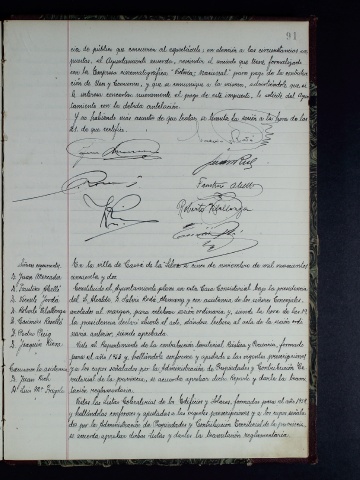 91
cia de público que concurren al espectáculo, en atención a las circunstancias ex-
puestas, el Ayuntamiento acuerda, rescindir el concierto que tiene formalizado
con la Empresa cinematográfica para pago de la contribu-
ción de Usos y Consumos, y que se comunique a la misma, advirtiéndole que si
le interesa concertar nuevamente el pago de este impuesto, lo solicite del Ayun-
tamiento con la debida antelación.
Y no habiendo más asuntos de que tratar, se levanta la sesión a las horas de las
21. de que certifico.
Juan Puig
Faustino Abelló
Roberto Vilallonga
Señores asistentes
D. Juan Mercader
D. Faustino Abelló
D. Vicente Jordá
D. Roberto Vilallonga
D. Casimiro Reselló
D. Pedro Puig
D. Joaquín Riera.
D. Juan Coll
D. Luis Mª
En la villa de Cassá de la Selva a nueve de noviembre de mil novecientos
cincuenta y dos.
Constituido el Ayuntamiento pleno en esta Casa Consistorial bajo la presidencia
del S. Alcalde D. Robert y con asistencia de los señores Concejales,
anotados al margen, para celebrar sesión ordinaria y, siendo la hora de las 19
la presidencia declaró abierto el acto, dándose lectura al acta de la sesión ordi-
naria anterior, siendo aprobada.
Visto el Repartimiento de la contribución territorial Rústica y Pecuaria, formado
para el año 1953 y, hallándolo conforme y ajustado a las vigentes prescripciones
y a los cupos señalados por la Administración de Propiedades y Contribución Te-
rritorial de la provincia, se acuerda aprobar dicho Reparto y darle la trami-
tación reglamentaria.
Vistas las listas Cobratorias de los Edificios y Solares, formadas para el año 1953
y hallándolas conformes y ajustadas a las vigentes prescripciones y a los cupos señala-
dos por la Administración de Propiedades y Contribución Territorial de la provincia,
se acuerda aprobar dichas listas y darles la tramitación reglamentaria.